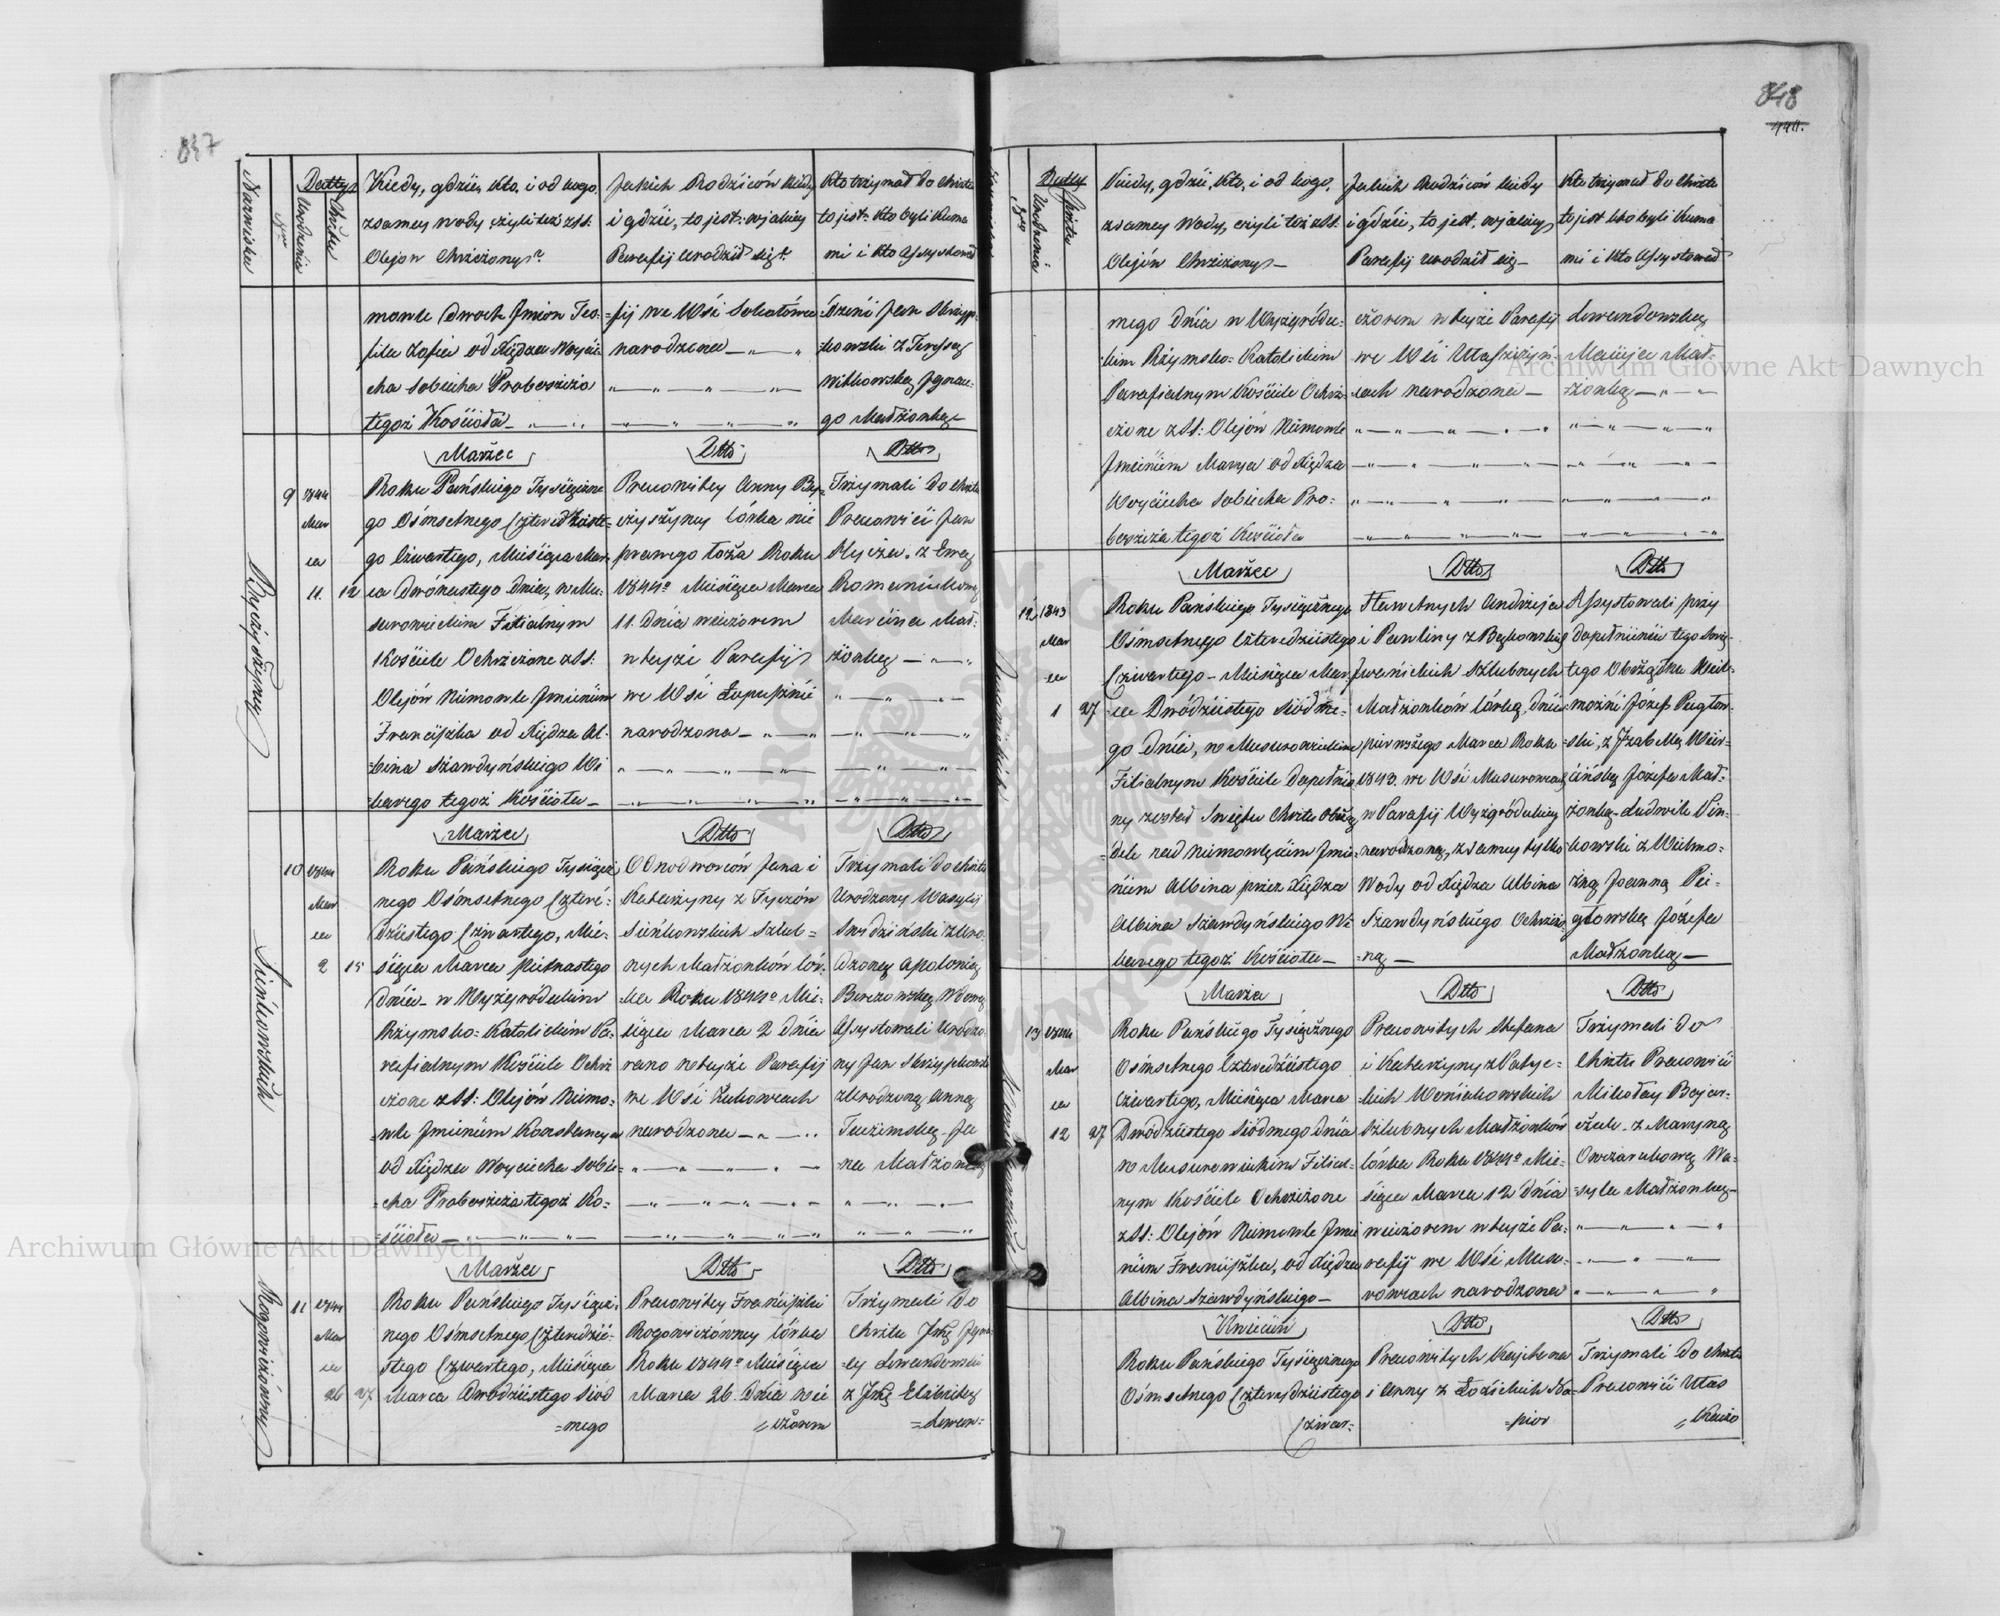 847
Nazwiska
Nro
Datty
Urodzenia
Chrztu
Kiedy, gdzie, kto, i od kogo,
z samey wody, czyli też z SS.
Olejów Chrzczony?
Jakich Rodziców kiedy
i gdzie, to jest: w jakiey
Parafij urodził się?
Kto trzymał do Chrztu
to jest: kto byli Kuma
mi i kto Assystował
mowle dwoch Jmion Teo-
fila Zofia od Xiędza Woycie
cha Sobucha Proboszcza
tegoż Kościoła
=fij we Wsi
narodzona
dzeni Jan Skrzyp-
kowski z Teressą
Witkowską Jgnace-
go Małżonką
Marzec
Dtto
Dtto
9 1844
Mar
ca
11. 12
Roku Pańskiego Tysiączne
go Ośmsetnego Czterdzieste-
go Czwartego, Miesiąca Mar-
ca Dwónastego Dnia, w Ma-
surowieckim Filialnym
Kościele Ochrzczone z SS:
Olejów Niemowle Jmieniem
Franciszka od Xiędza Al-
bina Szawdyńskiego Wi
karego tegoż Kościoła
Pracowitey Anny By-
czyszyney Córka nie
prawego łoża Roku
1844o Miesiąca Marca
11. Dnia wieczorem
w teyże Parafij
we Wsi Łopusznie
narodzona
Trzymali do Chrztu
Pracowici Jan
z Ewą
Romaniukową
Marcina Mał-
żonką
Marzec
Dtto
Dtto
10 1844
Mar
ca
2 15
Sieńkowskich
Roku Pańskiego Tysiącz
nego Ośmsetnego Czterd-
dziestego Czwartego, Mie-
siąca Marca Piętnastego
dnia w Wyżgródeckim
Rzymsko-Katolickim Pa-
rafialnym Kościele Ochrz
czone z SS: Olejów Niemo-
wle Jmieniem Konstancya
od Xiędza Woyciecha Sobu-
cha Proboszcza tegoż Ko-
ścioła
Odnodworców Jana i
Katarzyny z Tyszów
Sieńkowskich Szlub-
nych Małżonków Cór-
ka Roku 1844o Mie-
siąca Marca 2 dnia
rano w teyże Parafij
we Wsi Żukowcach
narodzona
Trzymali do Chrztu
Urodzony Wasylij
Swidziński z Uro-
dzoną Apolonią
Wdową
Assystowali Urodzo-
ny Jan Skrzypkowski
z Urodzoną Anną
Ja
na Małżonką
Marzec
Dtto
Dtto
11 1844
Mar
ca
26 27
Rogowiczówney
Roku Pańskiego Tysiącz-
nego Ośmsetnego Czterdzie-
stego Czwartego, Miesiąca
Marca Dwodziestego Siód
=mego
Pracowitey Franciszki
Rogowiczówney Córka
Roku 1844o Miesiąca
Marca 26. Dnia wie
=czorem
Trzymali do
Chrztu
Lewandowski
z Elżbietą
=Lewan=
848
Nro
Datty
Urodzenia
Chrztu
Kiedy, gdzie, kto, i od kogo,
z samey Wody, czyli też z SS.
Olejów Chrzczony
Jakich Rodziców kiedy
i gdzie, to jest, w jakiey
Parafij urodził się
Kto trzymał do Chrztu
to jest kto byli Kuma
mi i kto Assystował
mego dnia w Wyżgródec-
kim Rzymsko-Katolickim
Parafialnym Kościele Ochrz-
czone z SS: Olejów Niemowle
Jmieniem Marya od Xiędza
Woyciecha Sobucha Pro-
boszcza tegoż Kościoła
czorem w teyże Parafij
we Wsi
narodzona
Lewandowską
Macieja Mał-
żonką
Marzec
Dtto
Dtto
12 1843
Mar
ca
1 27
Roku Pańskiego Tysiącznego
Ośmsetnego Czterdziestego
Czwartego Miesiąca Mar-
ca Dwódziestego Siódme-
go dnia, w Masurowieckim
Filialnym Kościele dopełnio
ny został Święty Chrztu Obrzą
dek nad Niemowlęciem Jmie-
niem Albina przez Xiędza
Albina Szawdyńskiego Wi
karego tegoż Kościoła
Sławetnych Andrzeja
i Pauliny z Bękowskich
Jwanickich Szlubnych
Małżonków Córką, dnia
pierwszego Marca Roku
1843. we Wsi Masurowcach
w Parafij Wyżgródeckiey
narodzoną, z samey tylko
Wody od Xiędza Albina
Szawdyńskiego Ochrzczo-
ną
Assystowali przy
dopełnieniu tego Świę-
tego Obrządku Wiel-
możni Józef Pigłow-
ski, z Jzabellą
Józefa Mał-
żonką Ludwik Pin-
kowski z Wielmo-
żną Joanną Pi-
głowską Józefa
Małżonką
Marzec
Dtto
Dtto
13 1844
Mar
ca
12 27
Roku Pańskiego Tysiącznego
Ośmsetnego Czterdziestego
Czwartego, Miesiąca Marca
Dwódziestego Siódmego dnia
w Masurowieckim Filial-
nym Kościele Ochrzczone
z SS: Olejów Niemowle Jmie
niem Franciszka, od Xiędza
Albina Szawdyńskiego
Pracowitych Stefana
i Katarzyny z
Woniakowskich
Szlubnych Małżonków
Córka Roku 1844o Mie-
siąca Marca 12 dnia
wieczorem w teyże Pa-
rafij we Wsi Masu-
rowcach narodzona
Trzymali do
Chrztu Pracowici
Mikołay Bojar-
z Maryną
Owczarukową Wa-
syla Małżonką
Kwiecień
Dtto
Dtto
Roku Pańskiego Tysiącznego
Ośmsetnego Czterydziestego
Czwar=
Pracowitych Kajetana
i Anny z Łozickich Ka-
=pior
Trzymali do Chrztu
Pracowici Ułas
Archiwum Główne Akt Dawnych
Archiwum Główne Akt Dawnych